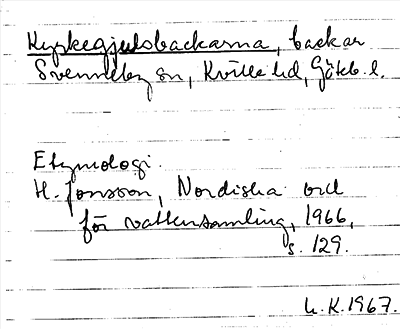 Kyrkegjulsbackarna, backar
Svenneby sn, Kville hd, Göteb. l.
Etymologi.
H. Jonsson, Nordiska ord
för vattensamling, 1966,
s. 129.
L. K. 1967.